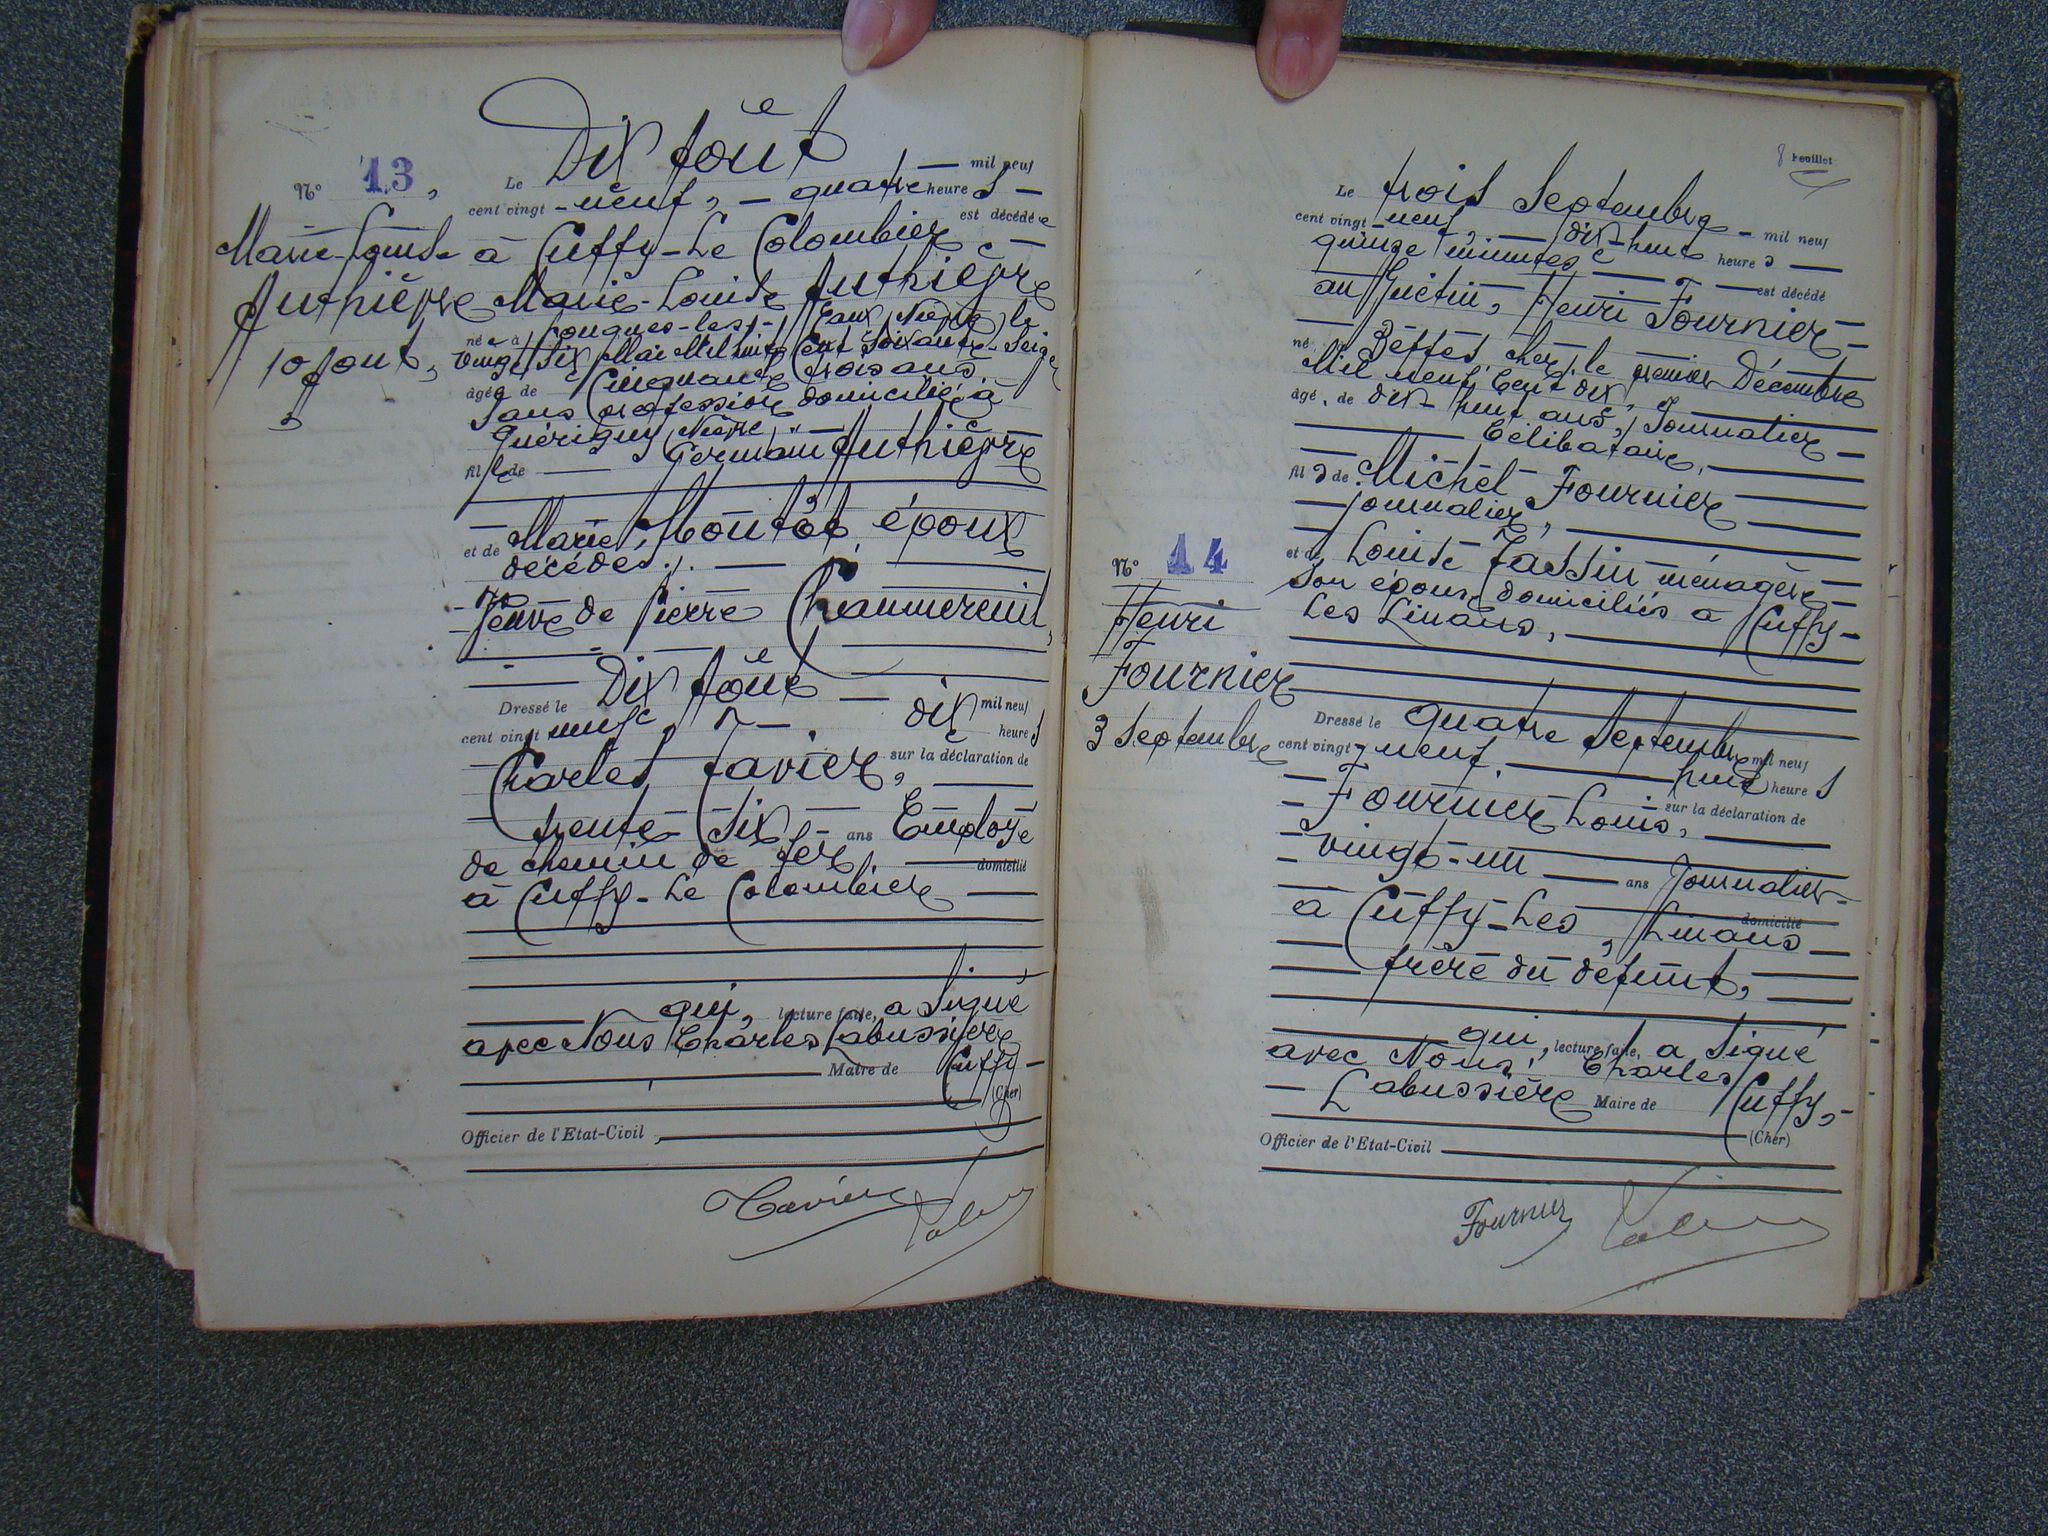 Dix Août
N° 13, Le mil neuf
cent vingt-neuf, quatre heures
est décédée
Marie-Louise
Authièvre
10 Août,
à Cuffy-Le Colombier
Marie-Louise Authièvre
née à Pougues-les-Eaux, Nièvre, le
vingt six Mai Mil huit Cent Soixante-Seize
âgée de Cinquante trois ans
sans profession domiciliée à
Guérigny, Nièvre,
fille de Germain Authièvre
et de Marie, époux
décédés.
Veuve de Pierre
Dix Août
Dressé le mil neuf
cent vingt neuf, dix heures
sur la déclaration de
Charles Tavier,
trente-six ans Employé
de chemin de fer domicilié
à Cuffy-Le Colombier
qui, lecture faite, a Signé
avec Nous Charles Labussière
Maire de Cuffy
(Cher)
Officier de l'Etat-Civil,
Tavier
8 Feuillet
Le trois Septembre mil neuf
cent vingt neuf, dix-huit heures
quinze minutes est décédé
au Guétin, Henri Fournier
né, Cher, le premier Décembre
Mil neuf Cent dix,
âgé de dix-huit ans, Journalier
Célibataire,
fils de Michel Fournier
journalier,
N° 14
Henri
Fournier
3 Septembre
et de Louise Tassin ménagère
son épouse domiciliés à Cuffy-
Les Linans,
Dressé le quatre Septembre mil neuf
cent vingt-neuf, huit heures
sur la déclaration de
Fournier Louis,
vingt-un ans Journalier
domicilié
à Cuffy-Les Linans
frère du défunt,
qui, lecture faite, a Signé
avec Nous, Charles
Labussière Maire de Cuffy,
(Cher)
Officier de l'Etat-Civil
Fournier